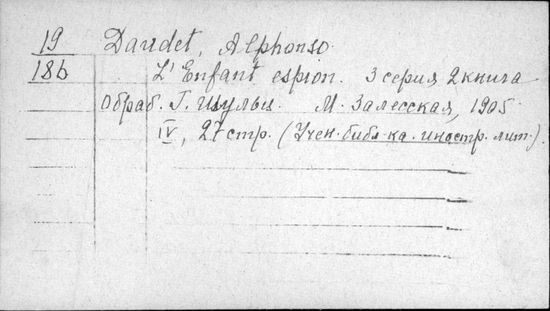 19 Daudet, Alphonso
18b L'Enfant espion. 3 серия 2 книга
Обраб. Г. Шульц. М. Залесская, 1905
IV, 27 стр. (Учен. библ-ка. иностр. лит.)